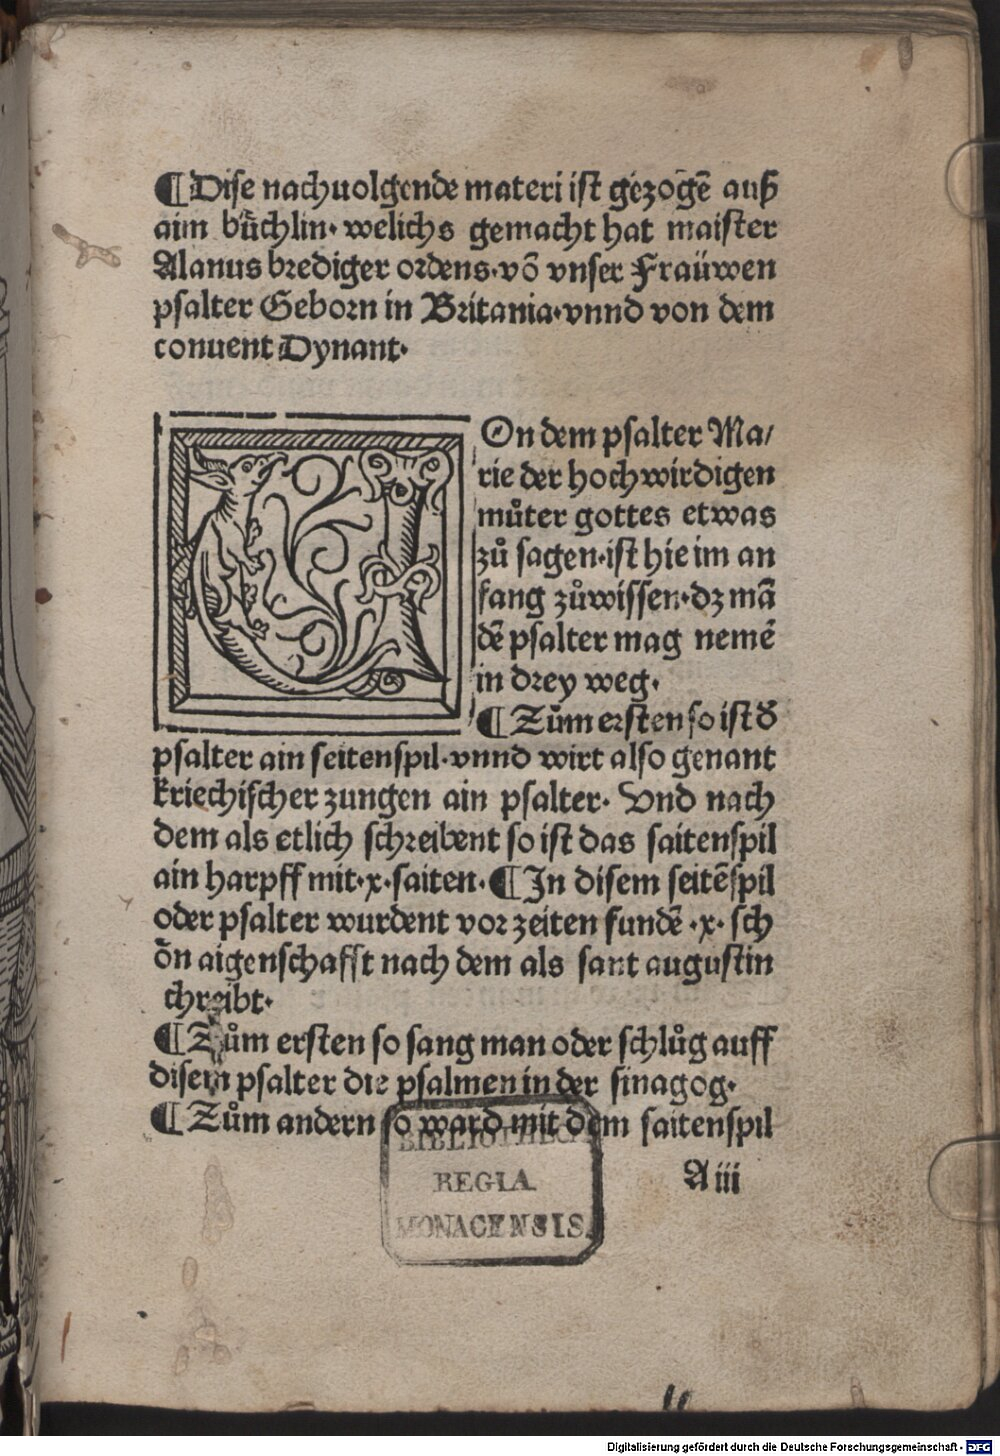 ¶ Dise nachuolgende materi ist gezogē auß
aim bůchlin· welichs gemacht hat maister
Alanus brediger ordens·vō vnser Fraüwen
psalter Geborn in Britania·vnnd von dem
conuent Dynant·
VOn dem psalter Ma/
rie der hochwirdigen
můter gottes etwas
zů sagen·ist hie im an
fang zůwissen·dz mā
dē psalter mag nemē
in drey weg·
¶ Zům ersten so ist đ
psalter ain seitenspil·vnnd wirt also genant
kriechischer zungen ain psalter· Vnd nach
dem als etlich schreibent so ist das saitenspil
ain harpff mit·x·saiten·¶ In disem seitēspil
oder psalter wurdent vor zeiten fundē ·x· sch
ōn aigenschafft nach dem als sant augustin
chreibt·
¶ Zům ersten so sang man oder schlůg auff
disem psalter die psalmen in der sinagog·
¶ Zům andern so ward mit dem saitenspil
A iii
BIBLIOTHECA
REGIA
MONACENSIS.
Digitalisierung gefördert durch die Deutsche Forschungsgemeinschaft - DFG